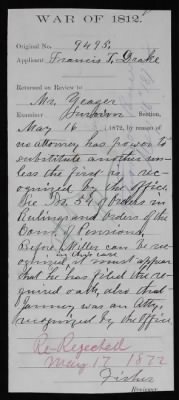 WAR OF 1812.
Original No. 9495.
Applicant Francis T. Drake
Returned on Review to
Mr. Yeager
Examiner Section,
May 16, 1872, by reason of
no attorney has power to
substitute another un-
less the first is rec-
ognized by the office
See No. 54 of Orders in
Rulings and Orders of the
Com. of Pensions,
Before Miller can be rec-
in this case
ognized, it must appear
that he has filed the re-
quired oath, also that
Janney was an Atty.
recognized by the Office.
Re-Rejected
May 17 1872
Fisher
Reviewer.